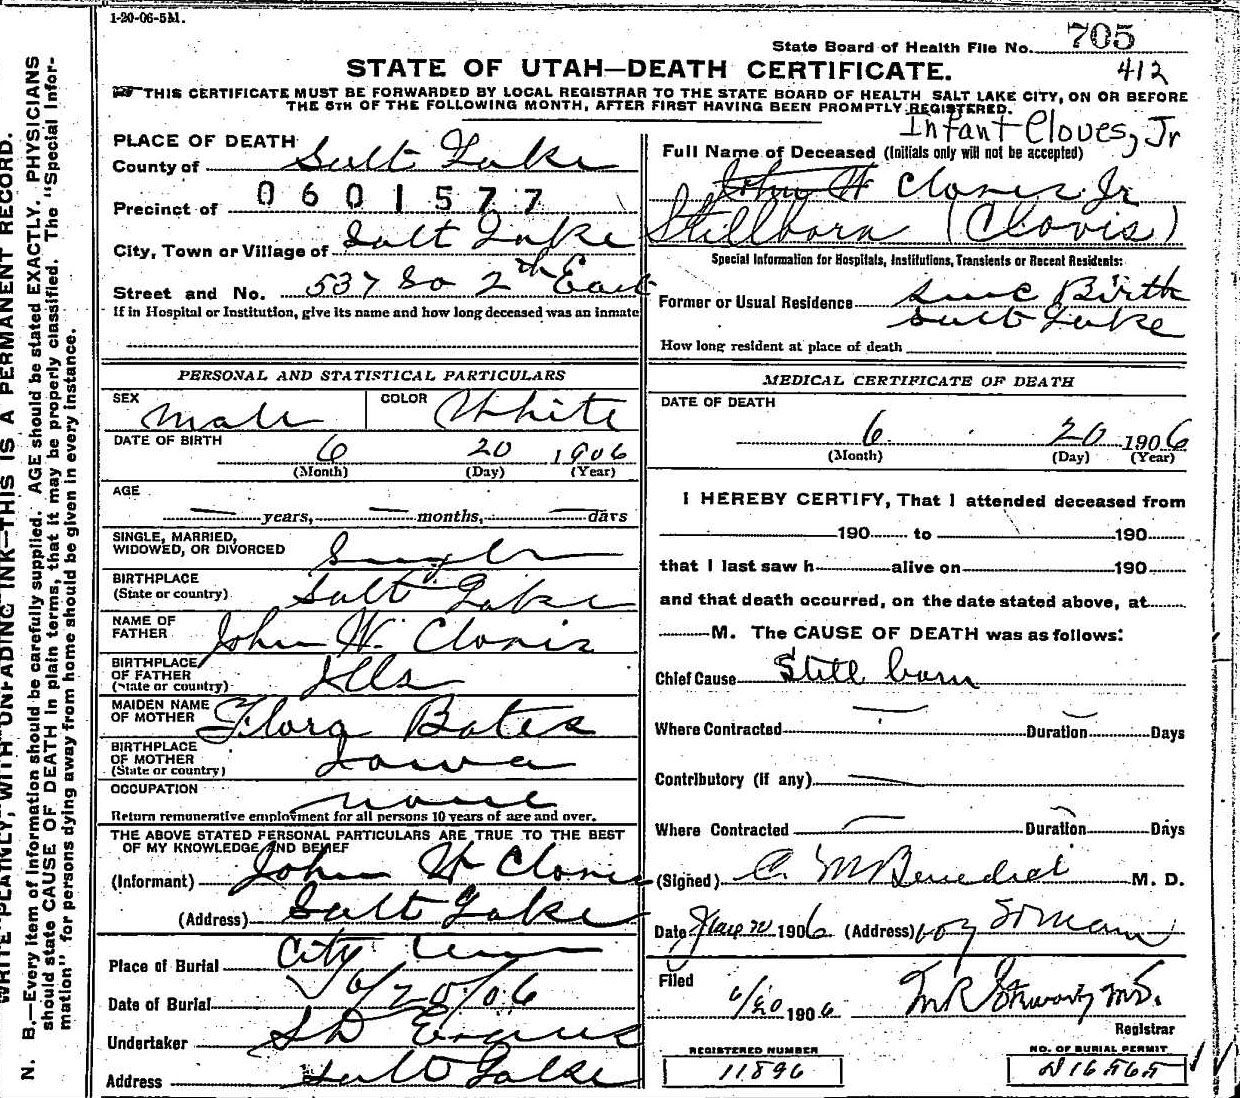 1-20-06-5M.
State Board of Health File No. 705
412
STATE OF UTAH—DEATH CERTIFICATE.
THIS CERTIFICATE MUST BE FORWARDED BY LOCAL REGISTRAR TO THE STATE BOARD OF HEALTH SALT LAKE CITY, ON OR BEFORE
THE 5TH OF THE FOLLOWING MONTH, AFTER FIRST HAVING BEEN PROMPTLY REGISTERED.
PLACE OF DEATH
County of Salt Lake
Precinct of 0601577
City, Town or Village of Salt Lake
Street and No. 537 So 2th East
If in Hospital or Institution, give its name and how long deceased was an inmate
Infant Cloves, Jr
Full Name of Deceased (Initials only will not be accepted)
John H Clovis Jr
Stillborn (Clovis)
Special Information for Hospitals, Institutions, Transients or Recent Residents:
Former or Usual Residence since Birth
Salt Lake
How long resident at place of death
PERSONAL AND STATISTICAL PARTICULARS
SEX Male COLOR White
DATE OF BIRTH 6 20 1906
(Month) (Day) (Year)
AGE
years, months, days
SINGLE, MARRIED,
WIDOWED, OR DIVORCED Single
BIRTHPLACE
(State or country) Salt Lake
NAME OF
FATHER John H. Clovis
BIRTHPLACE
OF FATHER
(State or country) Ills
MAIDEN NAME
OF MOTHER Flora Bates
BIRTHPLACE
OF MOTHER
(State or country) Iowa
OCCUPATION none
Return remunerative employment for all persons 10 years of age and over.
THE ABOVE STATED PERSONAL PARTICULARS ARE TRUE TO THE BEST
OF MY KNOWLEDGE AND BELIEF
(Informant) John H Clovis
(Address) Salt Lake
Place of Burial City Cem
Date of Burial 6/20/06
Undertaker S D Evans
Address Salt Lake
MEDICAL CERTIFICATE OF DEATH
DATE OF DEATH
6 20 1906
(Month) (Day) (Year)
I HEREBY CERTIFY, That I attended deceased from
190 to 190
that I last saw h alive on 190
and that death occurred, on the date stated above, at
M. The CAUSE OF DEATH was as follows:
Chief Cause Still born
Where Contracted Duration Days
Contributory (if any)
Where Contracted Duration Days
(Signed) C. M Benedict M. D.
Date 1906 (Address)
Filed
6/20 1906
Registrar
REGISTERED NUMBER
11896
NO. OF BURIAL PERMIT
N. B.—Every item of information should be carefully supplied. AGE should be stated EXACTLY. PHYSICIANS
should state CAUSE OF DEATH in plain terms, that it may be properly classified. The "Special Infor-
mation" for persons dying away from home should be given in every instance.
WRITE PLAINLY, WITH UNFADING INK—THIS IS A PERMANENT RECORD.